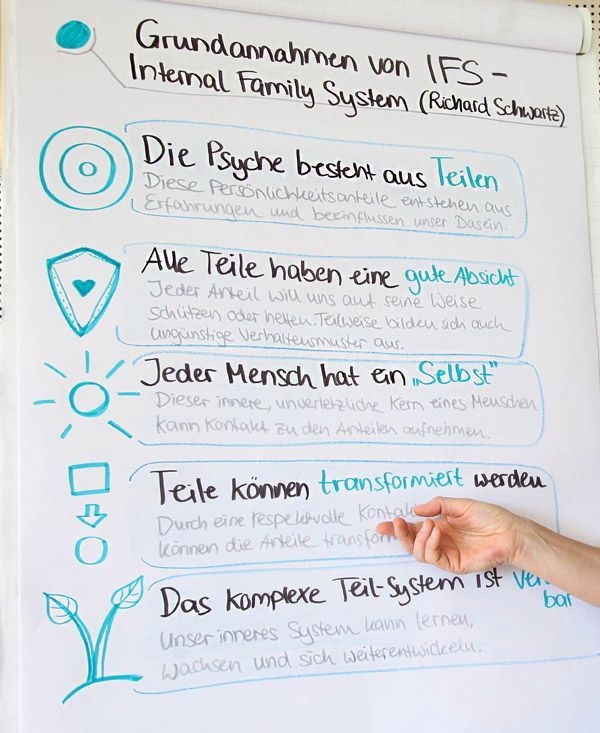 Grundannahmen von IFS -
Internal Family System (Richard Schwartz)
Die Psyche besteht aus Teilen
Diese Persönlichkeitsanteile entstehen aus
Erfahrungen und beeinflussen unser Dasein.
Alle Teile haben eine gute Absicht
Jeder Anteil will uns auf seine Weise
schützen oder helfen. Teilweise bilden sich auch
ungünstige Verhaltensmuster aus.
Jeder Mensch hat ein „Selbst"
Dieser innere, unverletzliche Kern eines Menschen
kann Kontakt zu den Anteilen aufnehmen.
Teile können transformiert werden
Durch eine respektvolle
können die Anteile
Das komplexe Teil-System ist
bar
Unser inneres System kann lernen,
wachsen und sich weiterentwickeln.